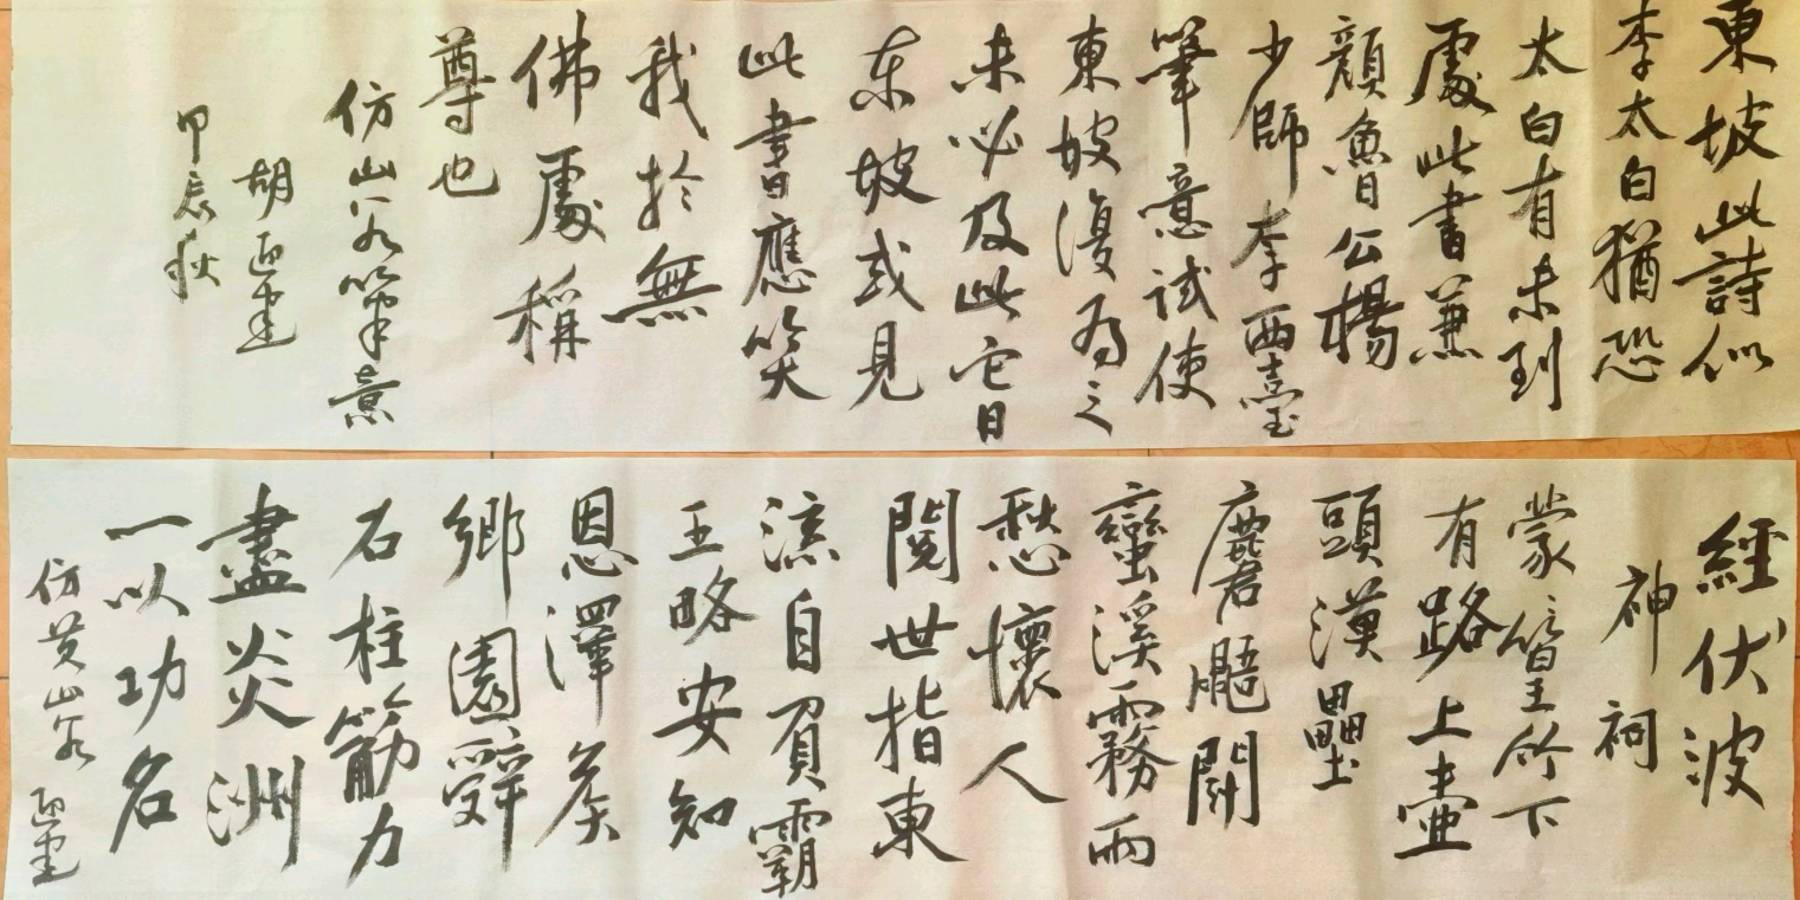 東坡此詩似
李太白猶恐
太白有未到
處此書兼
顔魯公楊
少師李西臺
筆意試使
東坡復為之
未必及此它日
东坡或見
此書應笑
我於無
佛處稱
尊也
仿山谷筆意
胡
甲辰秋
經伏波
神祠
蒙籠篁竹下
有路上壺
頭漢壘
麏鼯鬭
蠻溪霧雨
愁懷人
閱世指東
流自負霸
王略安知
恩澤矦
鄉園辭
石柱筋力
盡炎洲
一以功名
仿黄山谷